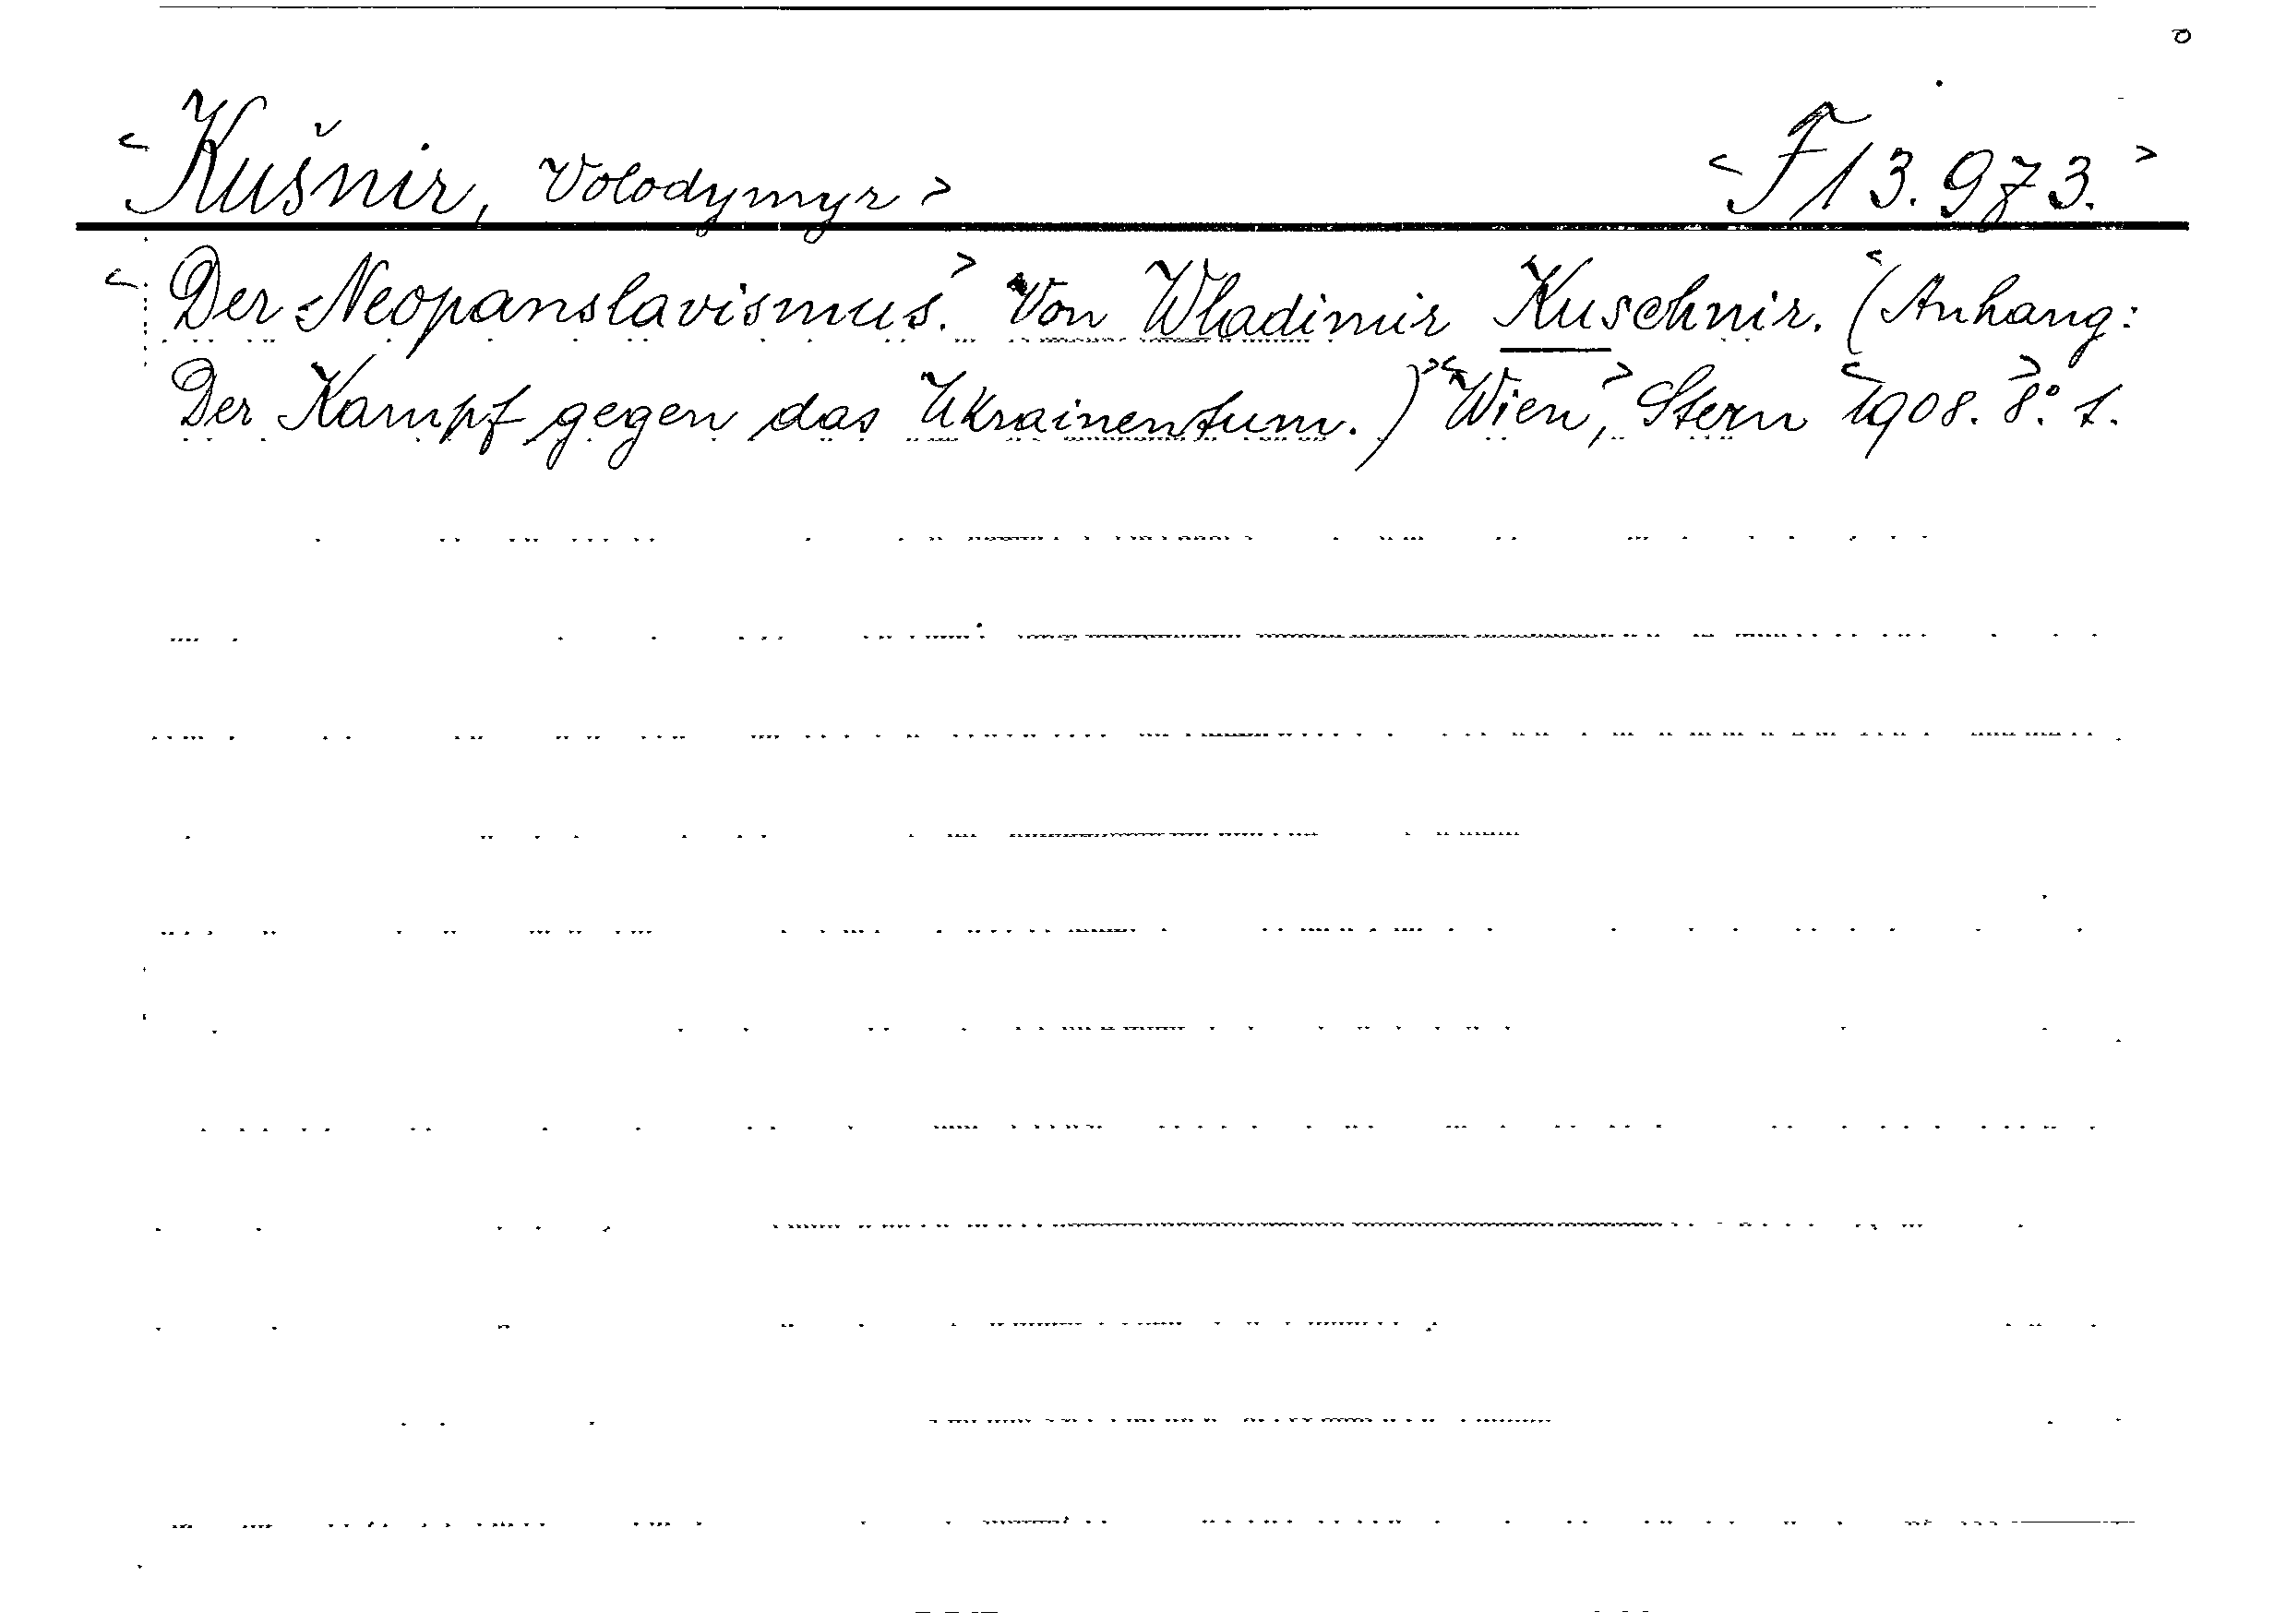 <Kušnir, Volodymyr> <F 13.973.>
<Der Neopanslavismus.> Von Wladimir Kuschnir. <(Anhang:
Der Kampf gegen das Ukrainentum.)> <Wien,> Stern <1908. 8.°> 1.